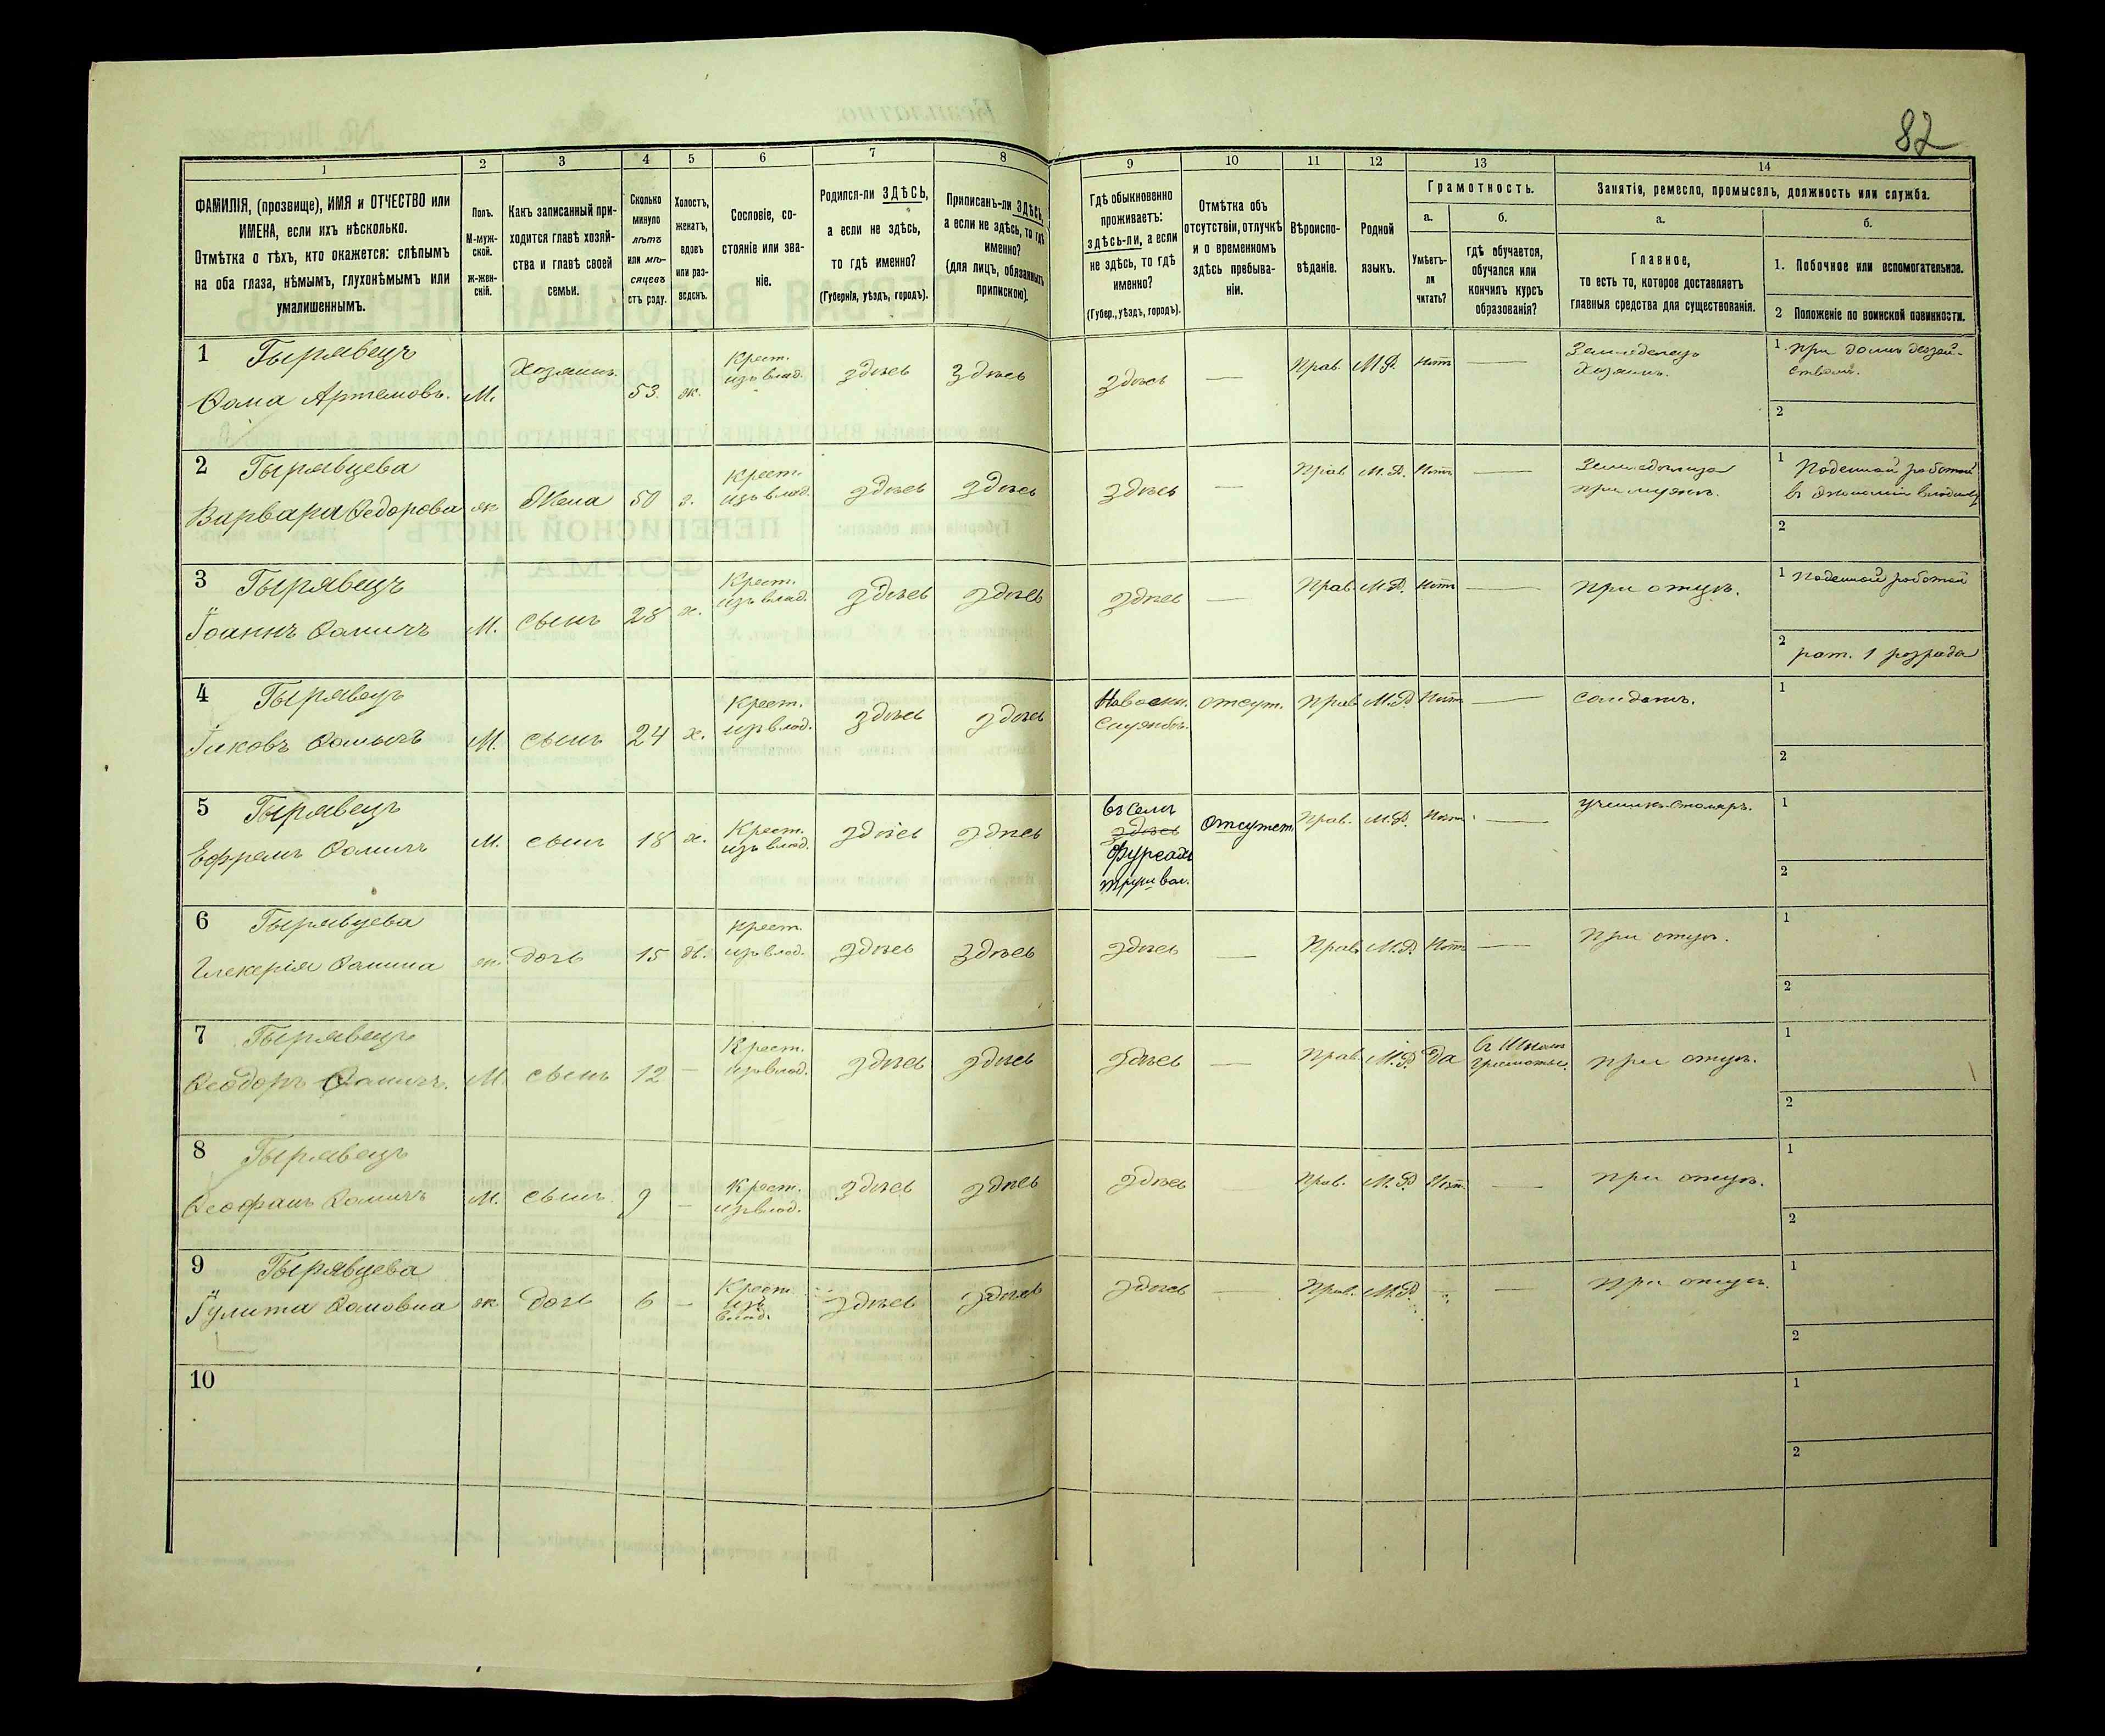 82
1
2
3
4
5
6
7
8
9
10
11
12
13
14
ФАМИЛІЯ, (прозвище), ИМЯ и ОТЧЕСТВО или
ИМЕНА, если ихъ нѣсколько.
Отмѣтка о тѣхъ, кто окажется: слѣпымъ
на оба глаза, нѣмымъ, глухонѣмымъ или
умалишеннымъ.
Полъ.
М-муж-
ской.
ж-жен-
скій.
Какъ записанный при-
ходится главѣ хозяй-
ства и главѣ своей
семьи.
Сколько
минуло
лѣтъ
или мѣ-
сяцевъ
отъ роду.
Холостъ,
женатъ,
вдовъ
или раз-
веденъ.
Сословіе, со-
стояніе или зва-
ніе.
Родился-ли ЗДѢСЬ,
а если не здѣсь,
то гдѣ именно?
(Губернія, уѣздъ, городъ).
Приписанъ-ли ЗДѢСЬ,
а если не здѣсь, то гдѣ
именно?
(для лицъ, обязанныхъ
припискою).
Гдѣ обыкновенно
проживаетъ:
здѣсь-ли, а если
не здѣсь, то гдѣ
именно?
(Губер., уѣздъ, городъ).
Отмѣтка объ
отсутствіи, отлучкѣ
и о временномъ
здѣсь пребыва-
ніи.
Вѣроиспо-
вѣданіе.
Родной
языкъ.
Грамотность.
а.
б.
Умѣетъ-
ли
читать?
гдѣ обучается,
обучался или
кончилъ курсъ
образованія?
Занятія, ремесло, промыселъ, должность или служба.
а.
б.
Главное,
то есть то, которое доставляетъ
главныя средства для существованія.
1. Побочное или вспомогательное.
2 Положеніе по воинской повинности.
1 Гырявецъ
Ѳома Артемовъ. М. Хозяинъ 53. ж. Крест. изъ влад. здѣсь здѣсь здѣсь — Прав. М.Р. нѣтъ — Земледелецъ хозяинъ. 1. при домѣ
2
2 Гырявцева
Варвара Ѳедорова ж Жена 50 з. Крест. изъ влад. здѣсь здѣсь здѣсь — Прав М.Р. нѣтъ — при мужѣ. 1 Поденной работой
2
3 Гырявецъ
Іоаннъ Ѳомичъ М. сынъ 28 х. Крест. изъ влад. здѣсь здѣсь здѣсь — Прав. М.Р. нѣтъ — при отцѣ. 1 поденной работой
2 рат. 1 розряда
4 Гырявецъ
Іаковъ Ѳомичъ М. сынъ 24 х. Крест. изъ влад. здѣсь здѣсь службѣ. отсут. Прав М.Р. нѣтъ — солдатъ. 1
2
5 Гырявецъ
Ефремъ Ѳомичъ М. сынъ 18 х. Крест. изъ влад. здѣсь здѣсь въ селѣ здѣсь отсутст. Прав. М.Р. нѣтъ — ученикъ столяръ. 1
2
6 Гырявцева
Гликерія Ѳомина ж. дочь 15 дѣ. Крест. изъ влад. здѣсь здѣсь здѣсь — Прав М.Р. нѣтъ — при отцѣ. 1
2
7 Гырявецъ
Ѳеодоръ Ѳомичъ. М. сынъ 12 — Крест. изъ влад. здѣсь здѣсь здѣсь — Прав М.Р. Да въ Школѣ грамоты. при отцѣ. 1
2
8 Гырявецъ
Ѳеофанъ Ѳомичъ М. сынъ 9 — Крест. изъ влад. здѣсь здѣсь здѣсь Прав. М.Р. нѣтъ — при отцѣ. 1
2
9 Гырявцева
Іулита Ѳомовна ж. дочь 6 — Крест. изъ влад. здѣсь здѣсь здѣсь — Прав. М.Р. — при отцѣ. 1
2
10
1
2